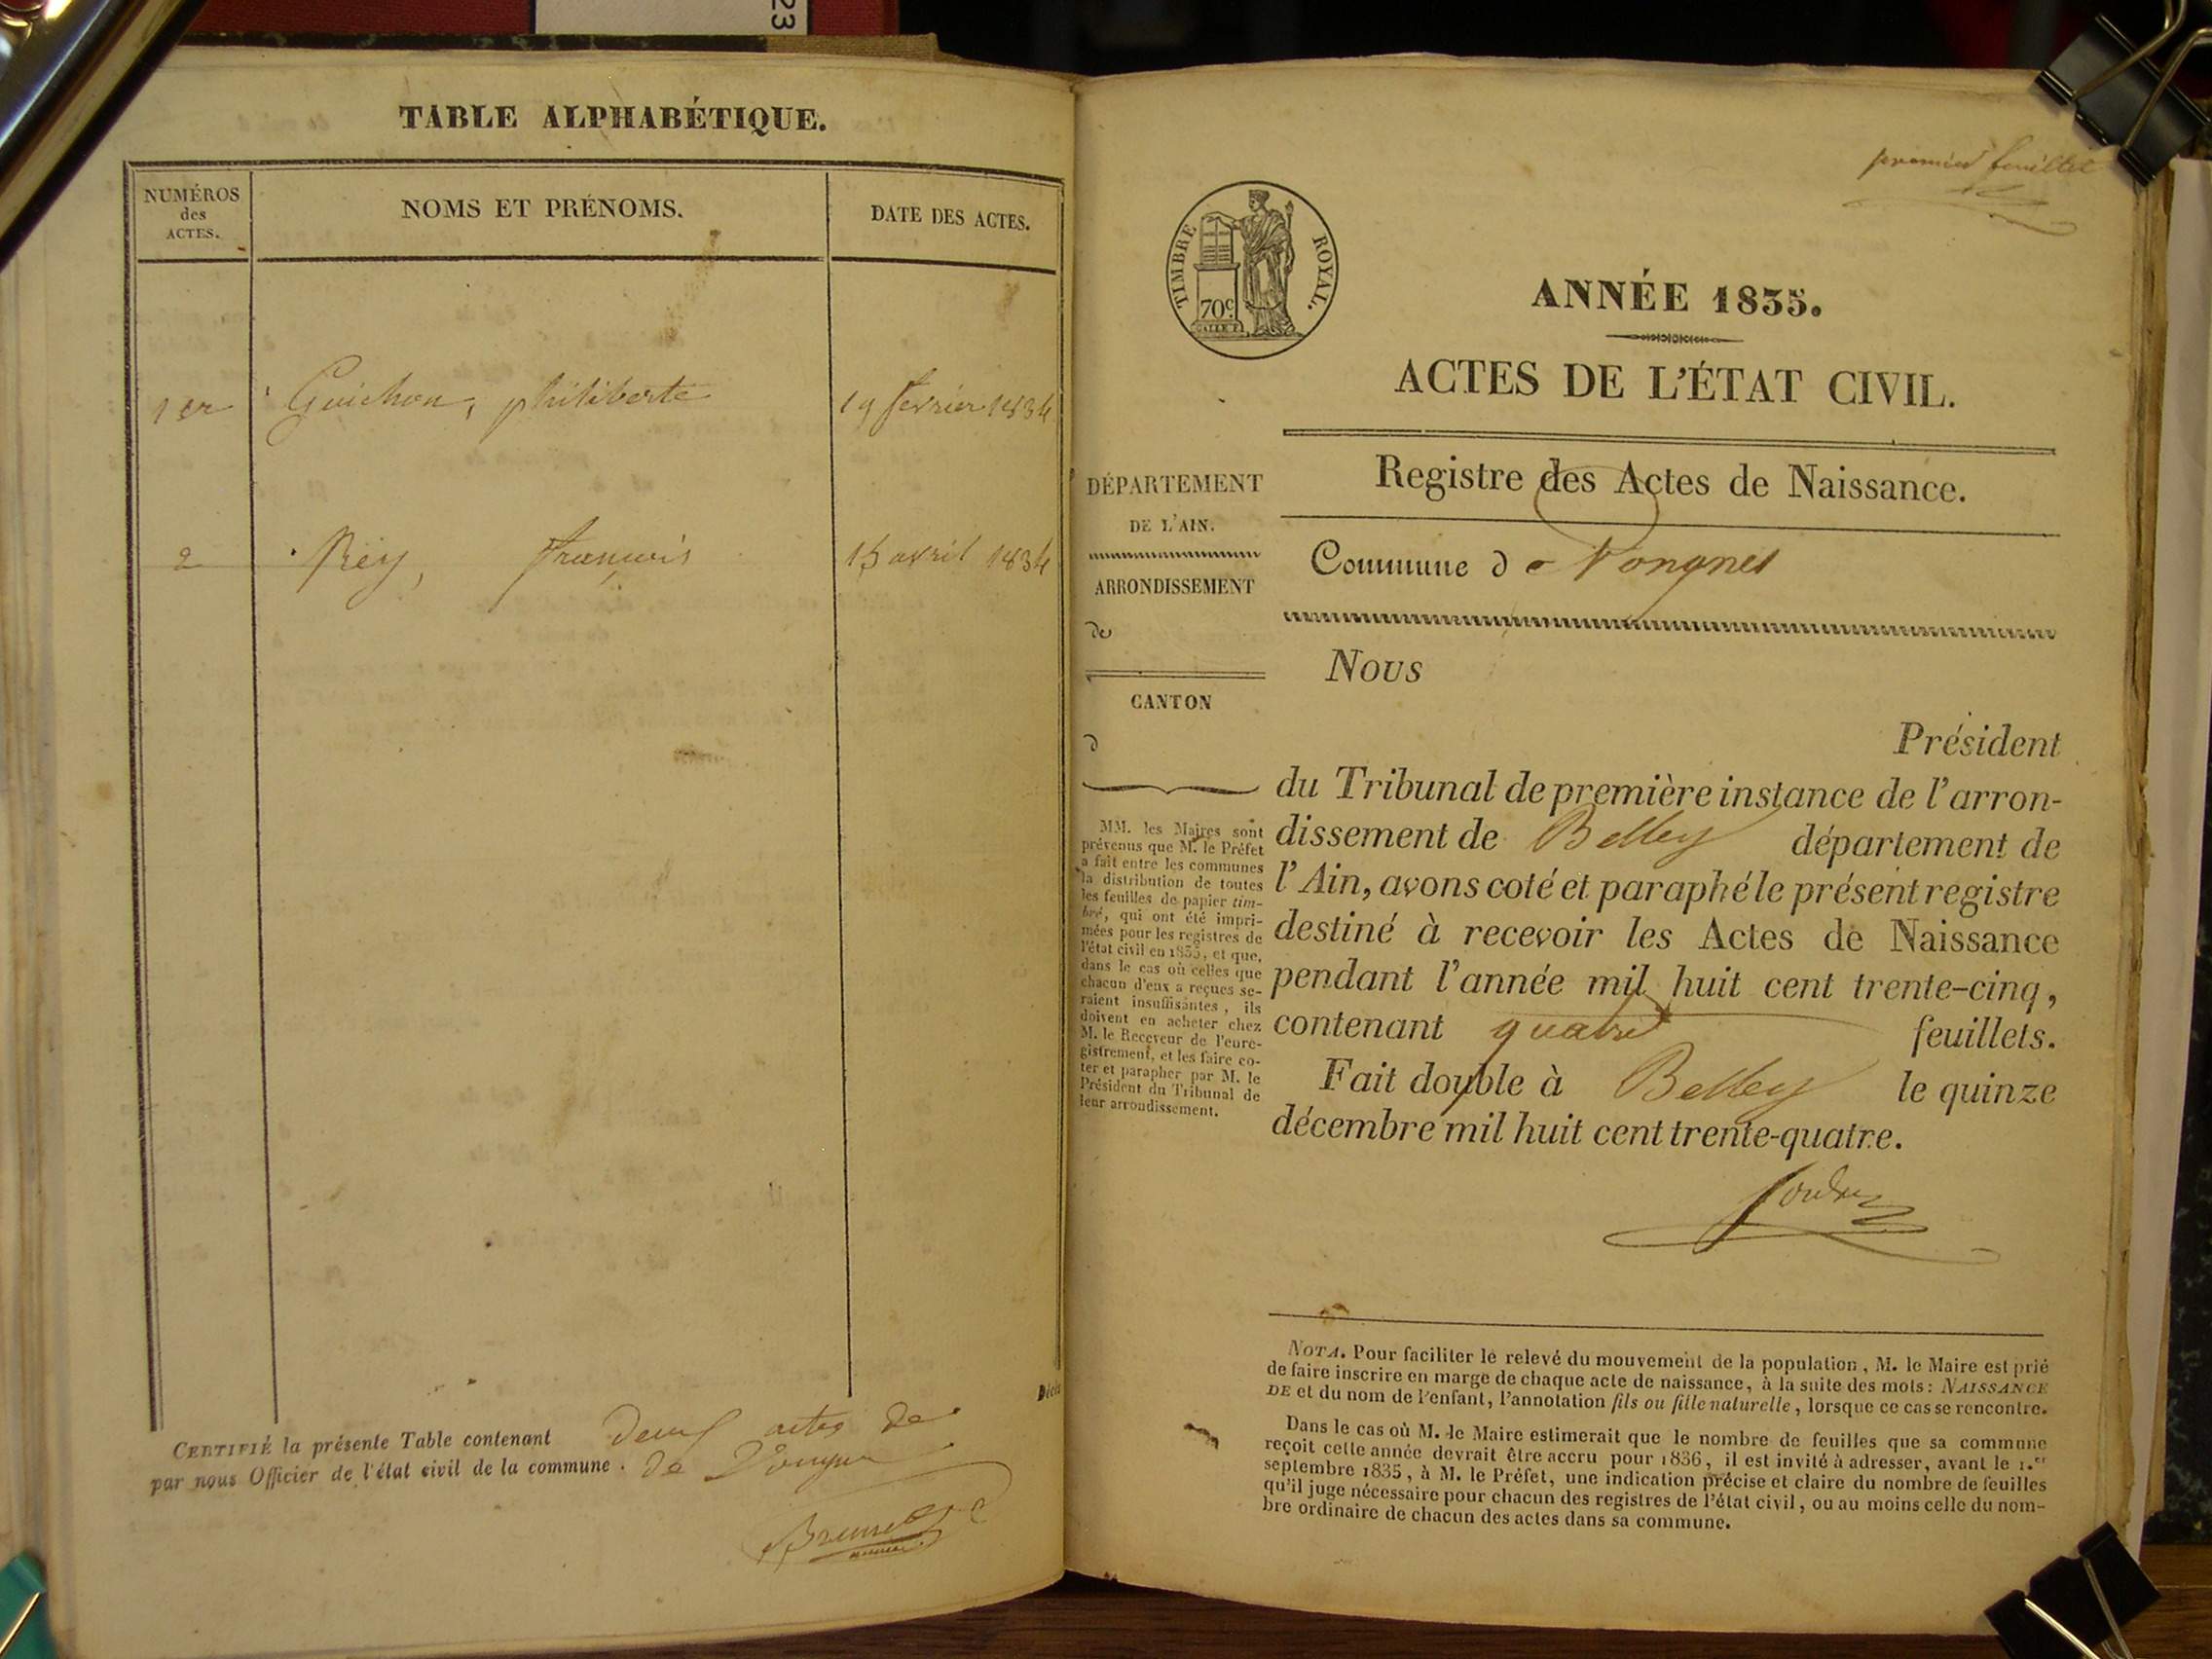 23
TABLE ALPHABÉTIQUE.
NUMÉROS
des
ACTES.
NOMS ET PRÉNOMS.
DATE DES ACTES.
1er Guichon, philiberte 19 fevrier 1834
2 Rey, francois 15 avril 1834
CERTIFIÉ la présente Table contenant deux actes de
par nous Officier de l'état civil de la commune de Vongnes
premier feuillet
TIMBRE ROYAL.
70c
ANNÉE 1835.
ACTES DE L'ÉTAT CIVIL.
Registre des Actes de Naissance.
Commune de Vongnes
DÉPARTEMENT
DE L'AIN.
ARRONDISSEMENT
de
CANTON
d
MM. les Maires sont
prévenus que M. le Préfet
a fait entre les communes
la distribution de toutes
les feuilles de papier tim-
bré, qui ont été impri-
mées pour les registres de
l'état civil en 1835, et que,
dans le cas où celles que
chacun d'eux a reçues se-
raient insuffisantes, ils
doivent en acheter chez
M. le Receveur de l'enre-
gistrement, et les faire co-
ter et parapher par M. le
Président du Tribunal de
leur arrondissement.
Nous
Président
du Tribunal de première instance de l'arron-
dissement de Belley département de
l'Ain, avons coté et paraphé le présent registre
destiné à recevoir les Actes de Naissance
pendant l'année mil huit cent trente-cinq,
contenant quatre feuillets.
Fait double à Belley le quinze
décembre mil huit cent trente-quatre.
NOTA. Pour faciliter le relevé du mouvement de la population, M. le Maire est prié
de faire inscrire en marge de chaque acte de naissance, à la suite des mots: NAISSANCE
DE et du nom de l'enfant, l'annotation fils ou fille naturelle, lorsque ce cas se rencontre.
Dans le cas où M. le Maire estimerait que le nombre de feuilles que sa commune
reçoit cette année devrait être accru pour 1836, il est invité à adresser, avant le 1.er
septembre 1835, à M. le Préfet, une indication précise et claire du nombre de feuilles
qu'il juge nécessaire pour chacun des registres de l'état civil, ou au moins celle du nom-
bre ordinaire de chacun des actes dans sa commune.